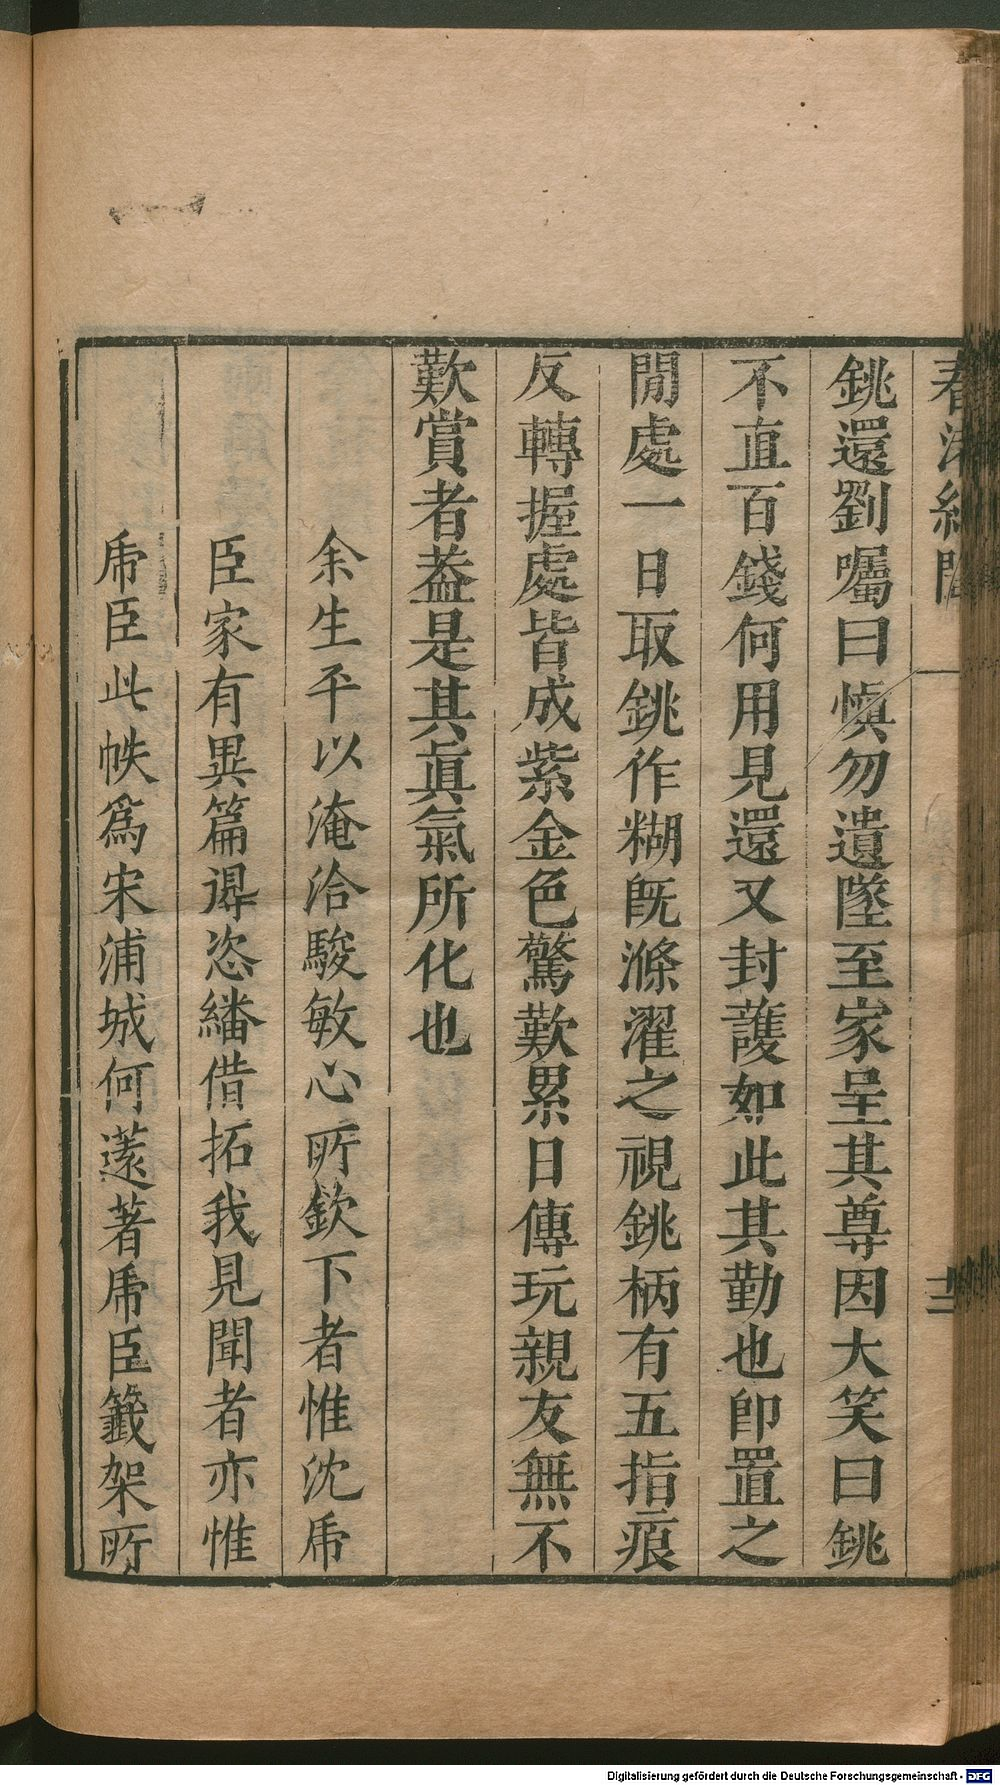 春渚紀聞
十二
銚還劉囑曰慎勿遺墜至家呈其尊因大笑曰銚
不直百錢何用見還又封護如此其勤也卽置之
閒處一日取銚作糊旣滌濯之視銚柄有五指痕
反轉握處皆成紫金色驚歎累日傳玩親友無不
歎賞者葢是其眞氣所化也
余生平以淹洽駿敏心所欽下者惟沈虎
臣家有異篇得恣繙借拓我見聞者亦惟
虎臣此帙爲宋浦城何薳著虎臣籤架所
Digitalisierung gefördert durch die Deutsche Forschungsgemeinschaft - DFG